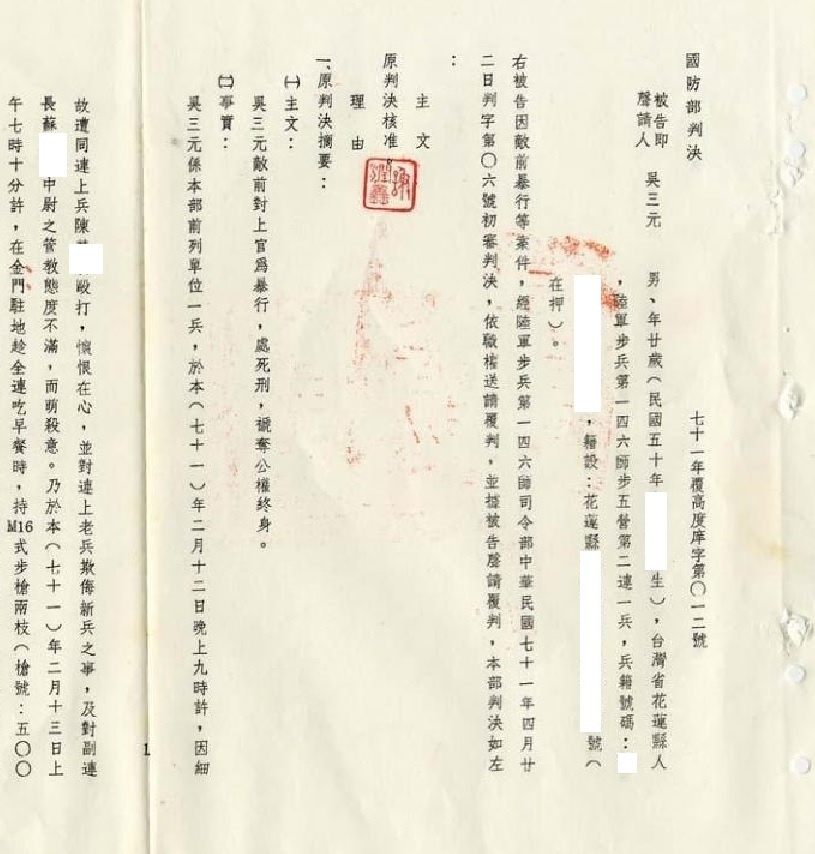 國防部判決
七十一年覆高度庠字第〇一二號
被告即
聲請人
吳三元 男、年廿歲（民國五十年 生），台灣省花蓮縣人
，陸軍步兵第一四六師步五營第二連一兵，兵籍號碼：
，籍設：花蓮縣 號（
在押）。
右被告因敵前暴行等案件，經陸軍步兵第一四六師司令部中華民國七十一年四月廿
二日判字第〇六號初審判決，依職權送請覆判，並據被告聲請覆判，本部判決如左
：
主文
原判決核准。
理由
一、原判決摘要：
㈠主文：
吳三元敵前對上官為暴行，處死刑，褫奪公權終身。
㈡事實：
吳三元係本部前列單位一兵，於本（七十一）年二月十二日晚上九時許，因細
1
故遭同連上兵陳 毆打，懷恨在心，並對連上老兵欺侮新兵之事，及對副連
長蘇 中尉之管教態度不滿，而萌殺意。乃於本（七十一）年二月十三日上
午七時十分許，在金門駐地趁全連吃早餐時，持M16式步槍兩枝（槍號：五〇〇